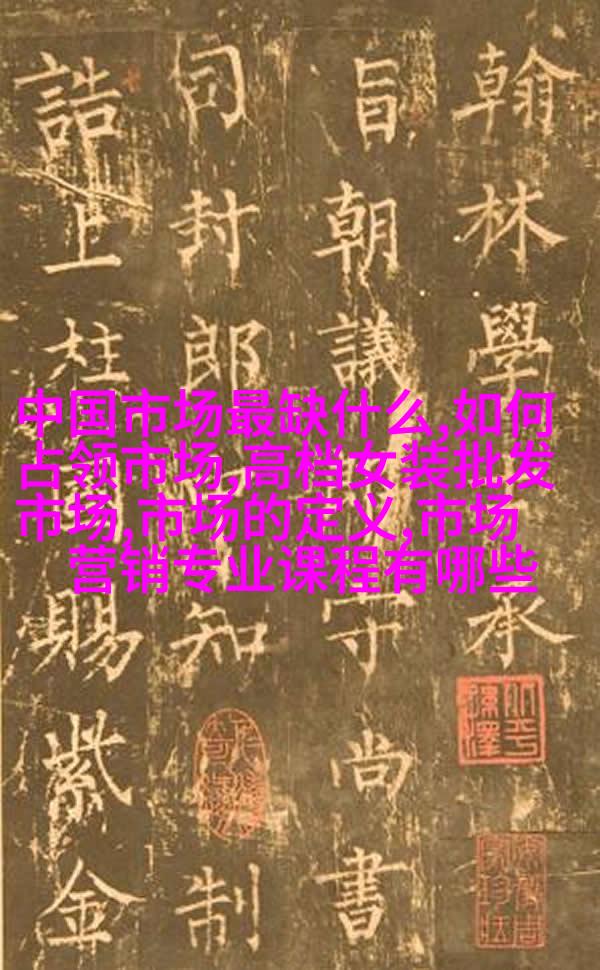 翰林學承
旨朝議守尚書
司封郎知制
誥上柱賜紫金
中国市场最缺什么,如何
占领市场,高档女装批发
市场,市场的定义,市场
营销专业课程有哪些